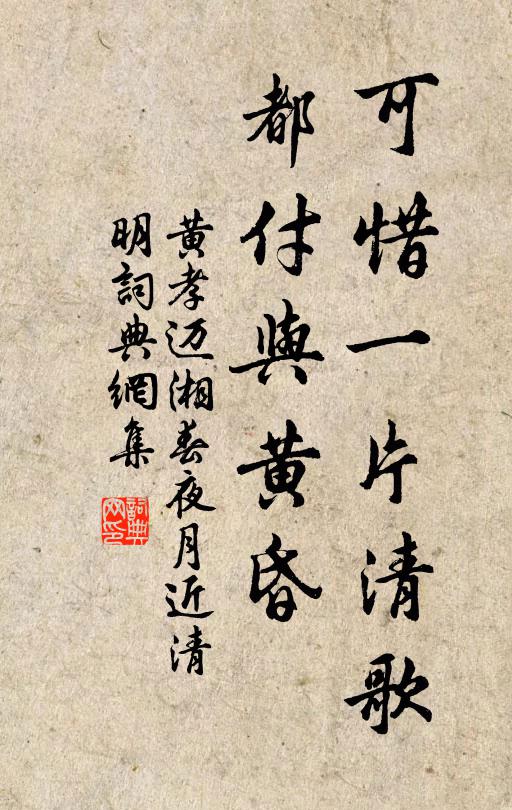 可惜一片清歌
都付與黃昏
黃孝迈湘春夜月近清
明詞典網集
詞典
网印